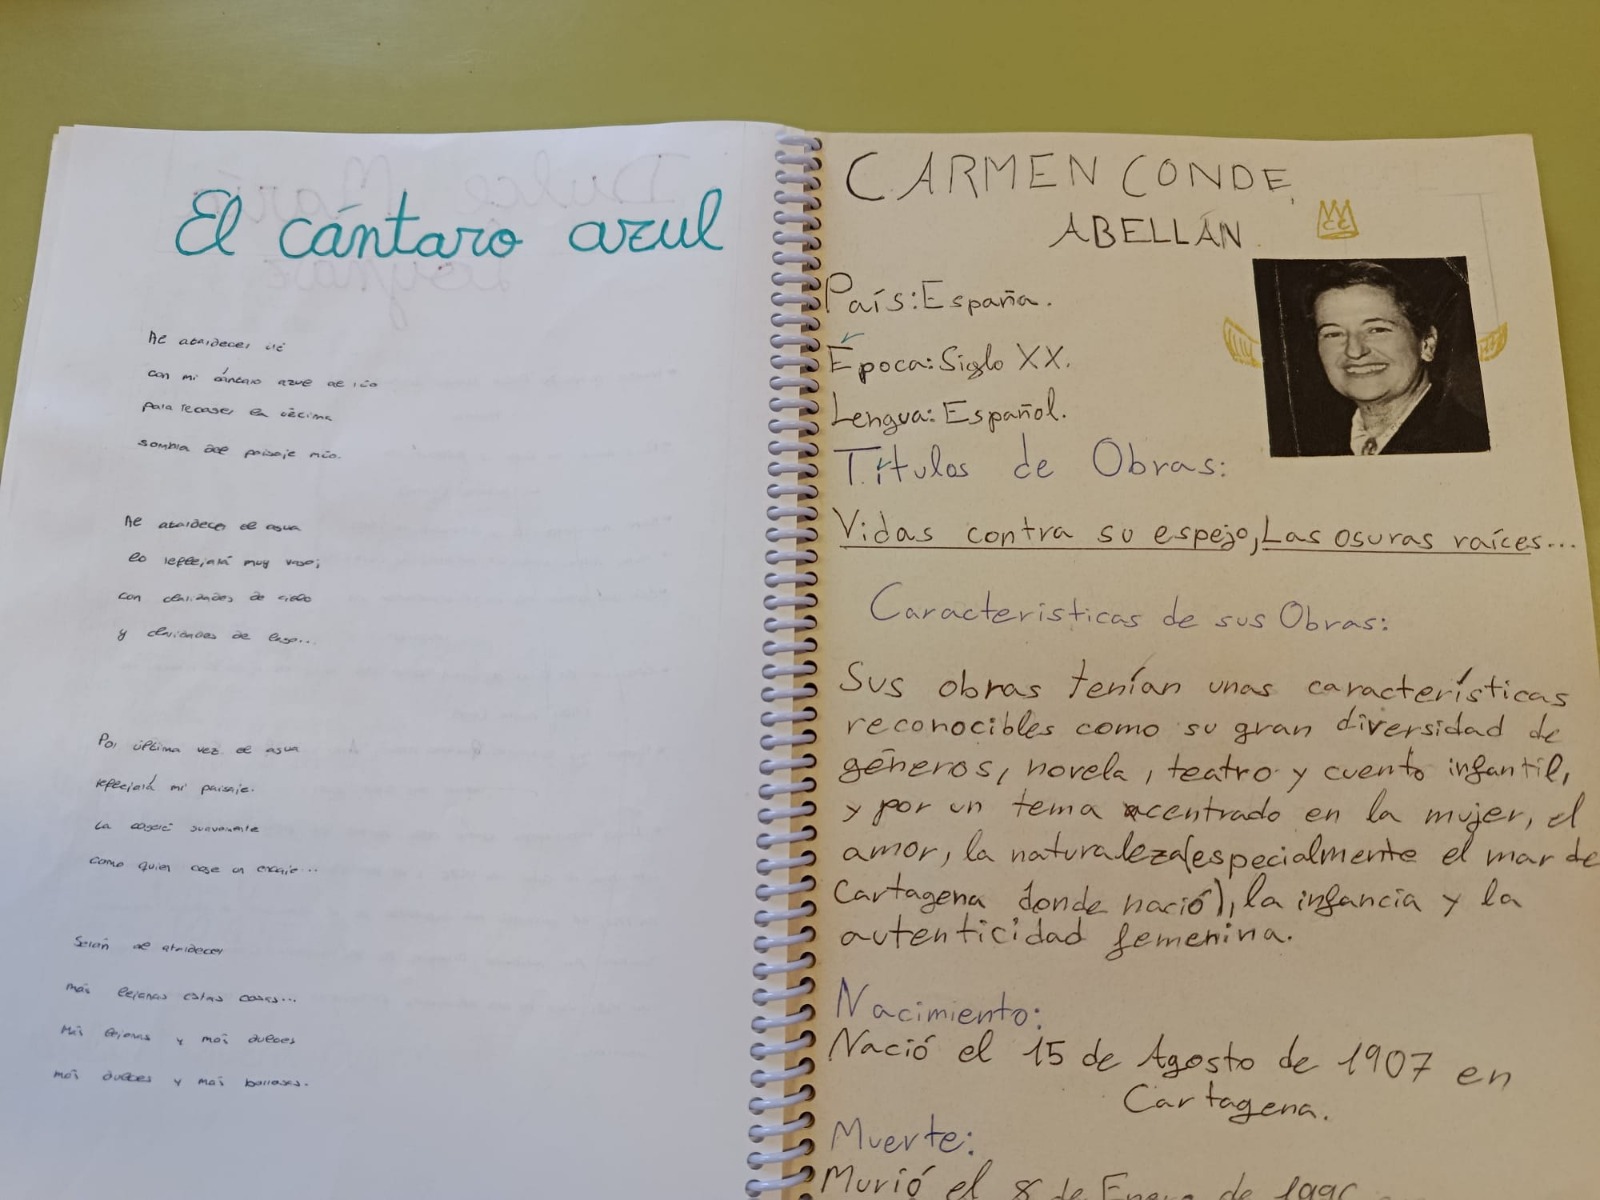 El cántaro azul
Al atardecer iré
con mi cántaro azul al río
para recoger la última
sombra del paisaje mío.
Al atardecer el agua
lo reflejará muy vago;
con claridades de cielo
y claridades de lago...
Por última vez el agua
reflejará mi paisaje.
La cogeré suavemente
como quien coge un encaje...
Serán al atardecer
más lejanas estas cosas...
Más lejanas y más dulces
más dulces y más borrosas.
CARMEN CONDE
ABELLÁN
CC
País: España.
Época: Siglo XX.
Lengua: Español.
Títulos de Obras:
Vidas contra su espejo, Las osuras raíces...
Caracteristicas de sus Obras:
Sus obras tenían unas características
reconocibles como su gran diversidad de
géneros, novela, teatro y cuento infantil,
y por un tema centrado en la mujer, el
amor, la naturaleza(especialmente el mar de
Cartagena donde nació), la infancia y la
autenticidad femenina.
Nacimiento:
Nació el 15 de Agosto de 1907 en
Cartagena.
Muerte:
Murió el 8 de Enero de